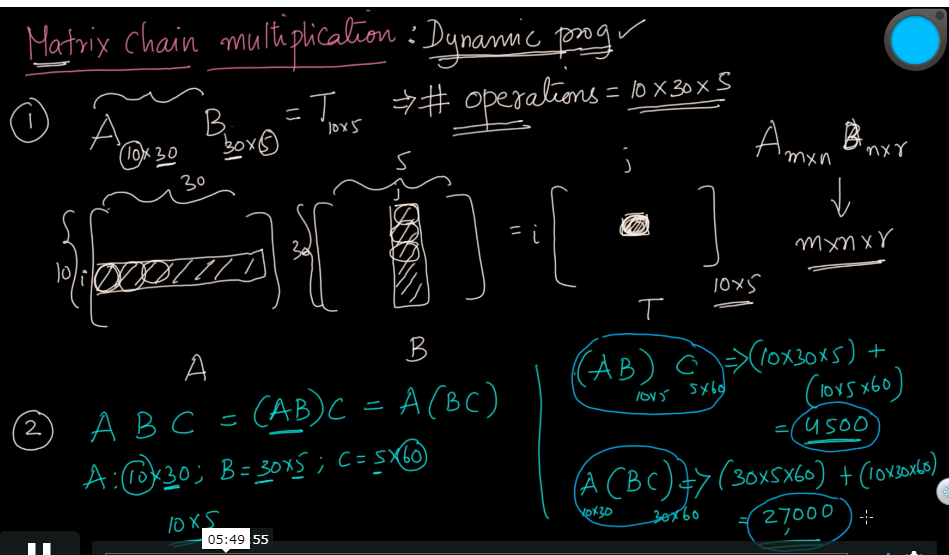 Matrix Chain multiplication : Dynamic prog ✓
① A 10×30 B 30×5 = T 10×5 ⇒ # operations = 10×30×5
A m×n B n×r
↓
m×n×r
30
5
j
j
10 i
30
= i
10×5
A
B
T
② A B C = (AB)C = A(BC)
A: 10×30; B = 30×5; C = 5×60
10×5
(AB) C ⇒ (10×30×5) +
10×5 5×60 (10×5×60)
= 4500
A (BC) ⇒ (30×5×60) + (10×30×60)
10×30 30×60
= 27000
05:49 55